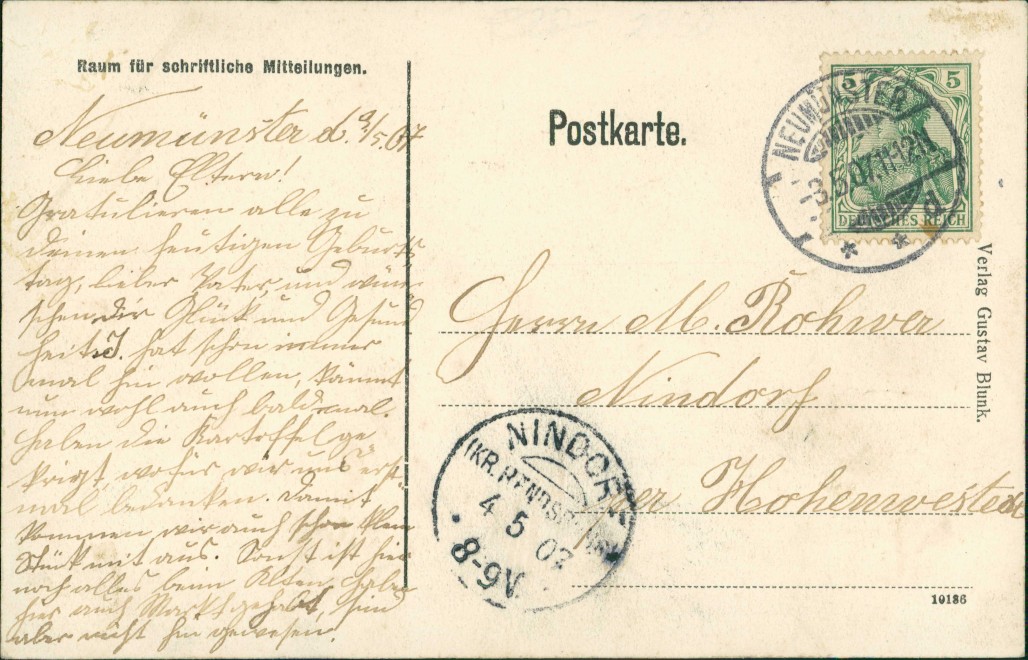 Raum für schriftliche Mitteilungen.
Neumünster d. /5.07
Liebe Eltern!
Gratulieren alle zu
deinem heutigen Geburts
tag, lieber Vater, und wün
schen dir Glück und Gesund
heit. J. hat schon immer
mal hin wollen, kömmt
nun wohl auch bald mal.
Haben die Kartoffel ge
kriegt, wofür wir uns erst
mal bedanken. Damit
kommen wir auch schon
Stück mit aus. Sonst ist hier
noch alles beim Alten, habe
hier auch Markt gehabt, sind
aber nicht hin gewesen.
Postkarte.
5 5
DEUTSCHES REICH
NEUMÜNSTER
3.5.07.11-12V.
d
* *
Herrn M. Rohwer
Nindorf
per Hohenwestedt
NINDORF
(KR. RENDSBURG)
4 5 07
8-9V.
Verlag Gustav Blunk.
10186